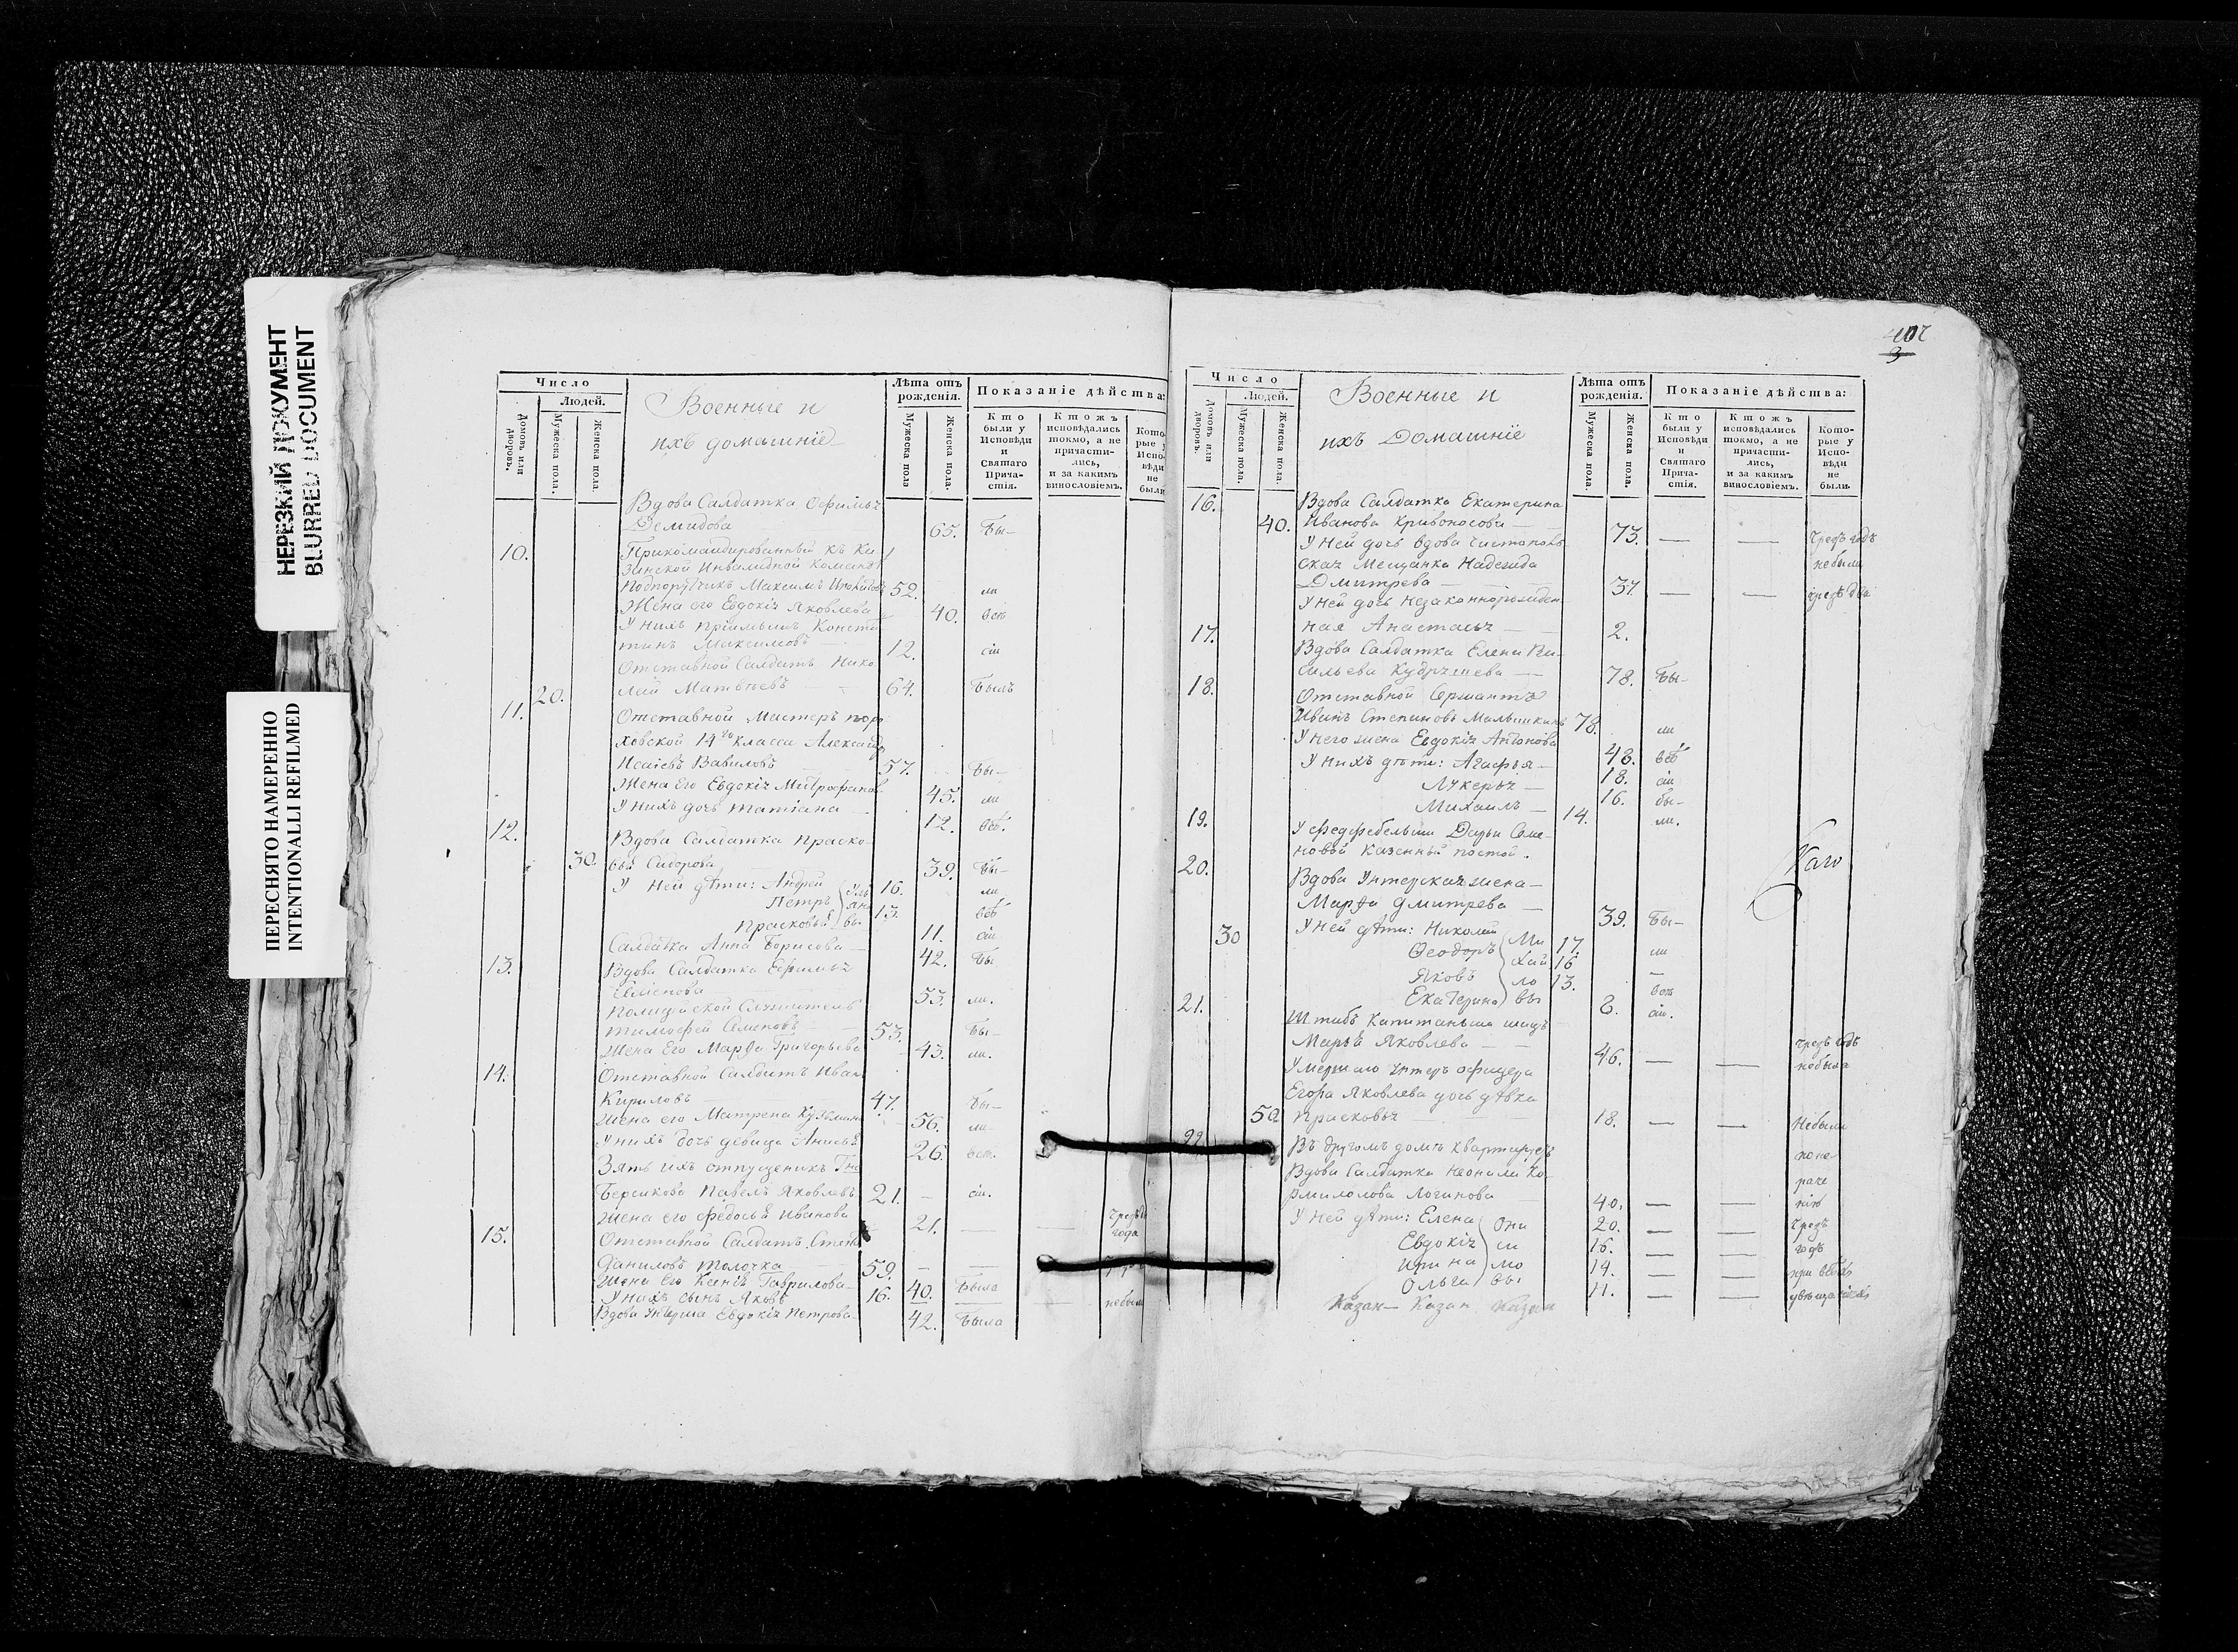 НЕРЕЗКИЙ ДОКУМЕНТ
BLURRED DOCUMENT
ПЕРЕСНЯТО НАМЕРЕННО
INTENTIONALLI REFILMED
Число
Людей.
Домовъ или дворовъ.
Мужеска пола.
Женска пола.
Военные и
ихъ домашніе
Лѣта отъ рожденія.
Мужеска пола
Женска пола.
Показаніе дѣйства:
Кто были у Исповѣди и Святаго Прича-стія.
Ктожъ исповѣдались токмо, а не причасти-лись, и за какимъ винословіемъ.
Кото-рые у Испо-вѣди не были
Вдова Салдатка Офимья
Демидова 65. Бы-
10. Прикомандированный къ Ка
занской Инвалидной команд
Подпорутчикъ Максимъ 52. ли
Жена его Евдокія Яковлева 40. всѣ
У нихъ пріимышъ Конста
тинъ Максимовъ 12. сіи
Отставной Салдатъ Нико
20. лай Матвѣевъ 64. Былъ
11. Отставной Мастеръ поро
ховской 14го класса Александр
Исаіевъ Вавиловъ 57. Бы-
Жена Его Евдокія Митрофанов 45. ли
У нихъ дочь Татіана 12. всѣ.
12. Вдова Салдатка Праско
30. вья Сидорова 39. Бы-
У ней дѣти: Андрей 16. ли
Петръ 13. всѣ
Прасковья 11. сіи
Салдатка Анна Борисова 42. Бы
13. Вдова Салдатка Ефимья
53. ли.
Полицейской Служитель
Тимофей Семеновъ 53. Бы-
Жена Его Марѳа Григорьева 43. ли.
14. Отставной Салдатъ Иван
Кириловъ 47. Бы-
Жена его Матрена Кузьмина 56. ли
У нихъ дочь девица Анисья 26. всѣ.
Зять ихъ отпущеникъ Гна
Берсикова Павелъ Яковлевъ 21. — сіи.
Жена его Федосья Иванова 21. — — года
15. Отставной Салдатъ Степа
Даниловъ Толочка 59. — —
Жена Его Ксенія Гаврилова 40. Была
У нихъ сынъ Яковъ 16. — —
Вдова Унтерша Евдокія Петрова 42. Была
402
3
Число
Людей.
Домовъ или дворовъ.
Мужеска пола.
Женска пола.
Военные и
ихъ Домашніе
Лѣта отъ рожденія.
Мужеска пола.
Женска пола.
Показаніе дѣйства:
Кто были у Исповѣди и Святаго Прича-стія.
Ктожъ исповѣдались токмо, а не причасти-лись, и за какимъ винословіемъ.
Кото-рые у Испо-вѣди не были.
16. Вдова Салдатка Екатерина
40. Иванова Кривоносова 73. — — Чрезъ годъ
У ней дочь вдова Чистополь небыли
ская Мещанка Надежда
Дмитрева 37. — — чрезъ два
У ней дочь незаконнорожден
ная Анастасья 2.
17. Вдова Салдатка Елена Ва-
сильева Кудряшева 78. Бы-
18. Отставной Сержантъ
Иванъ Степановъ Малышкинъ 78. ли
У него жена Евдокія Антонова 48. всѣ
У нихъ дѣти: Агафья 18. сіи
Лукерья 16. бы-
Михаилъ 14. ли.
19. У федфебельши Дарьи Семе-
новой казенный постой.
20. Вдова Унтерская жена
Марѳа Дмитрева 39. Бы-
30 У ней дѣти: Николай 17. ли
Ѳеодоръ 16 —
Яковъ 13. всѣ
Екатерина 8. сіи.
Михайловы
21. Штабъ Капитанша
Марья Яковлева 46. — — Чрезъ годъ
Умершаго Унтеръ офицера небыла
Егора Яковлева дочь дѣвка
50. Прасковья 18. — — Небыли
22 Въ другомъ домѣ квартируетъ
Вдова Салдатка Неонила
Логинова 40. — —
У ней дѣти: Елена 20. — — Чрезъ
Евдокія 16. — — годъ
Ирина 14. — — при всѣхъ
Ольга 11. — —
Казан— Казан Казан